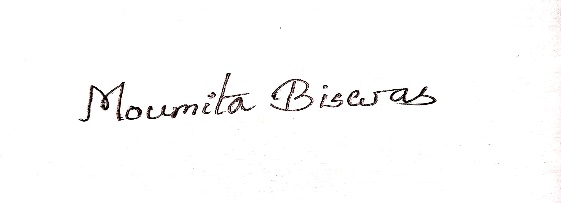 Moumita Biswas